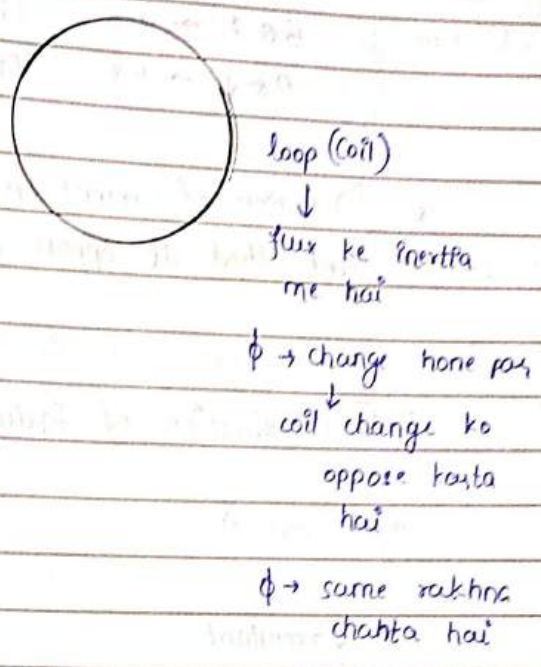 loop (coil)
↓
flux ke inertia
me hai
ϕ → change hone par
↓
coil change ko
oppose karta
hai
ϕ → same rakhna
chahta hai